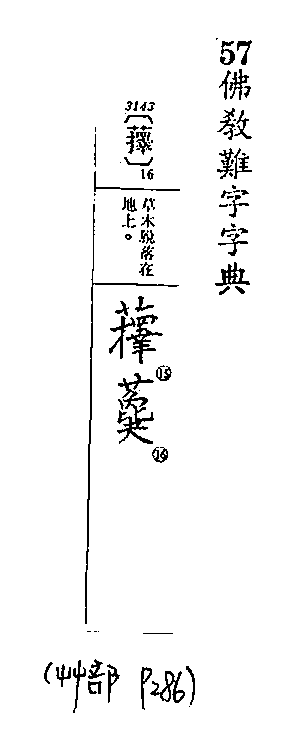 57佛敎難字字典
3143
〔蘀〕16
草木脫落在
地上。
蘀⑮
⑯
(艸部 P286)